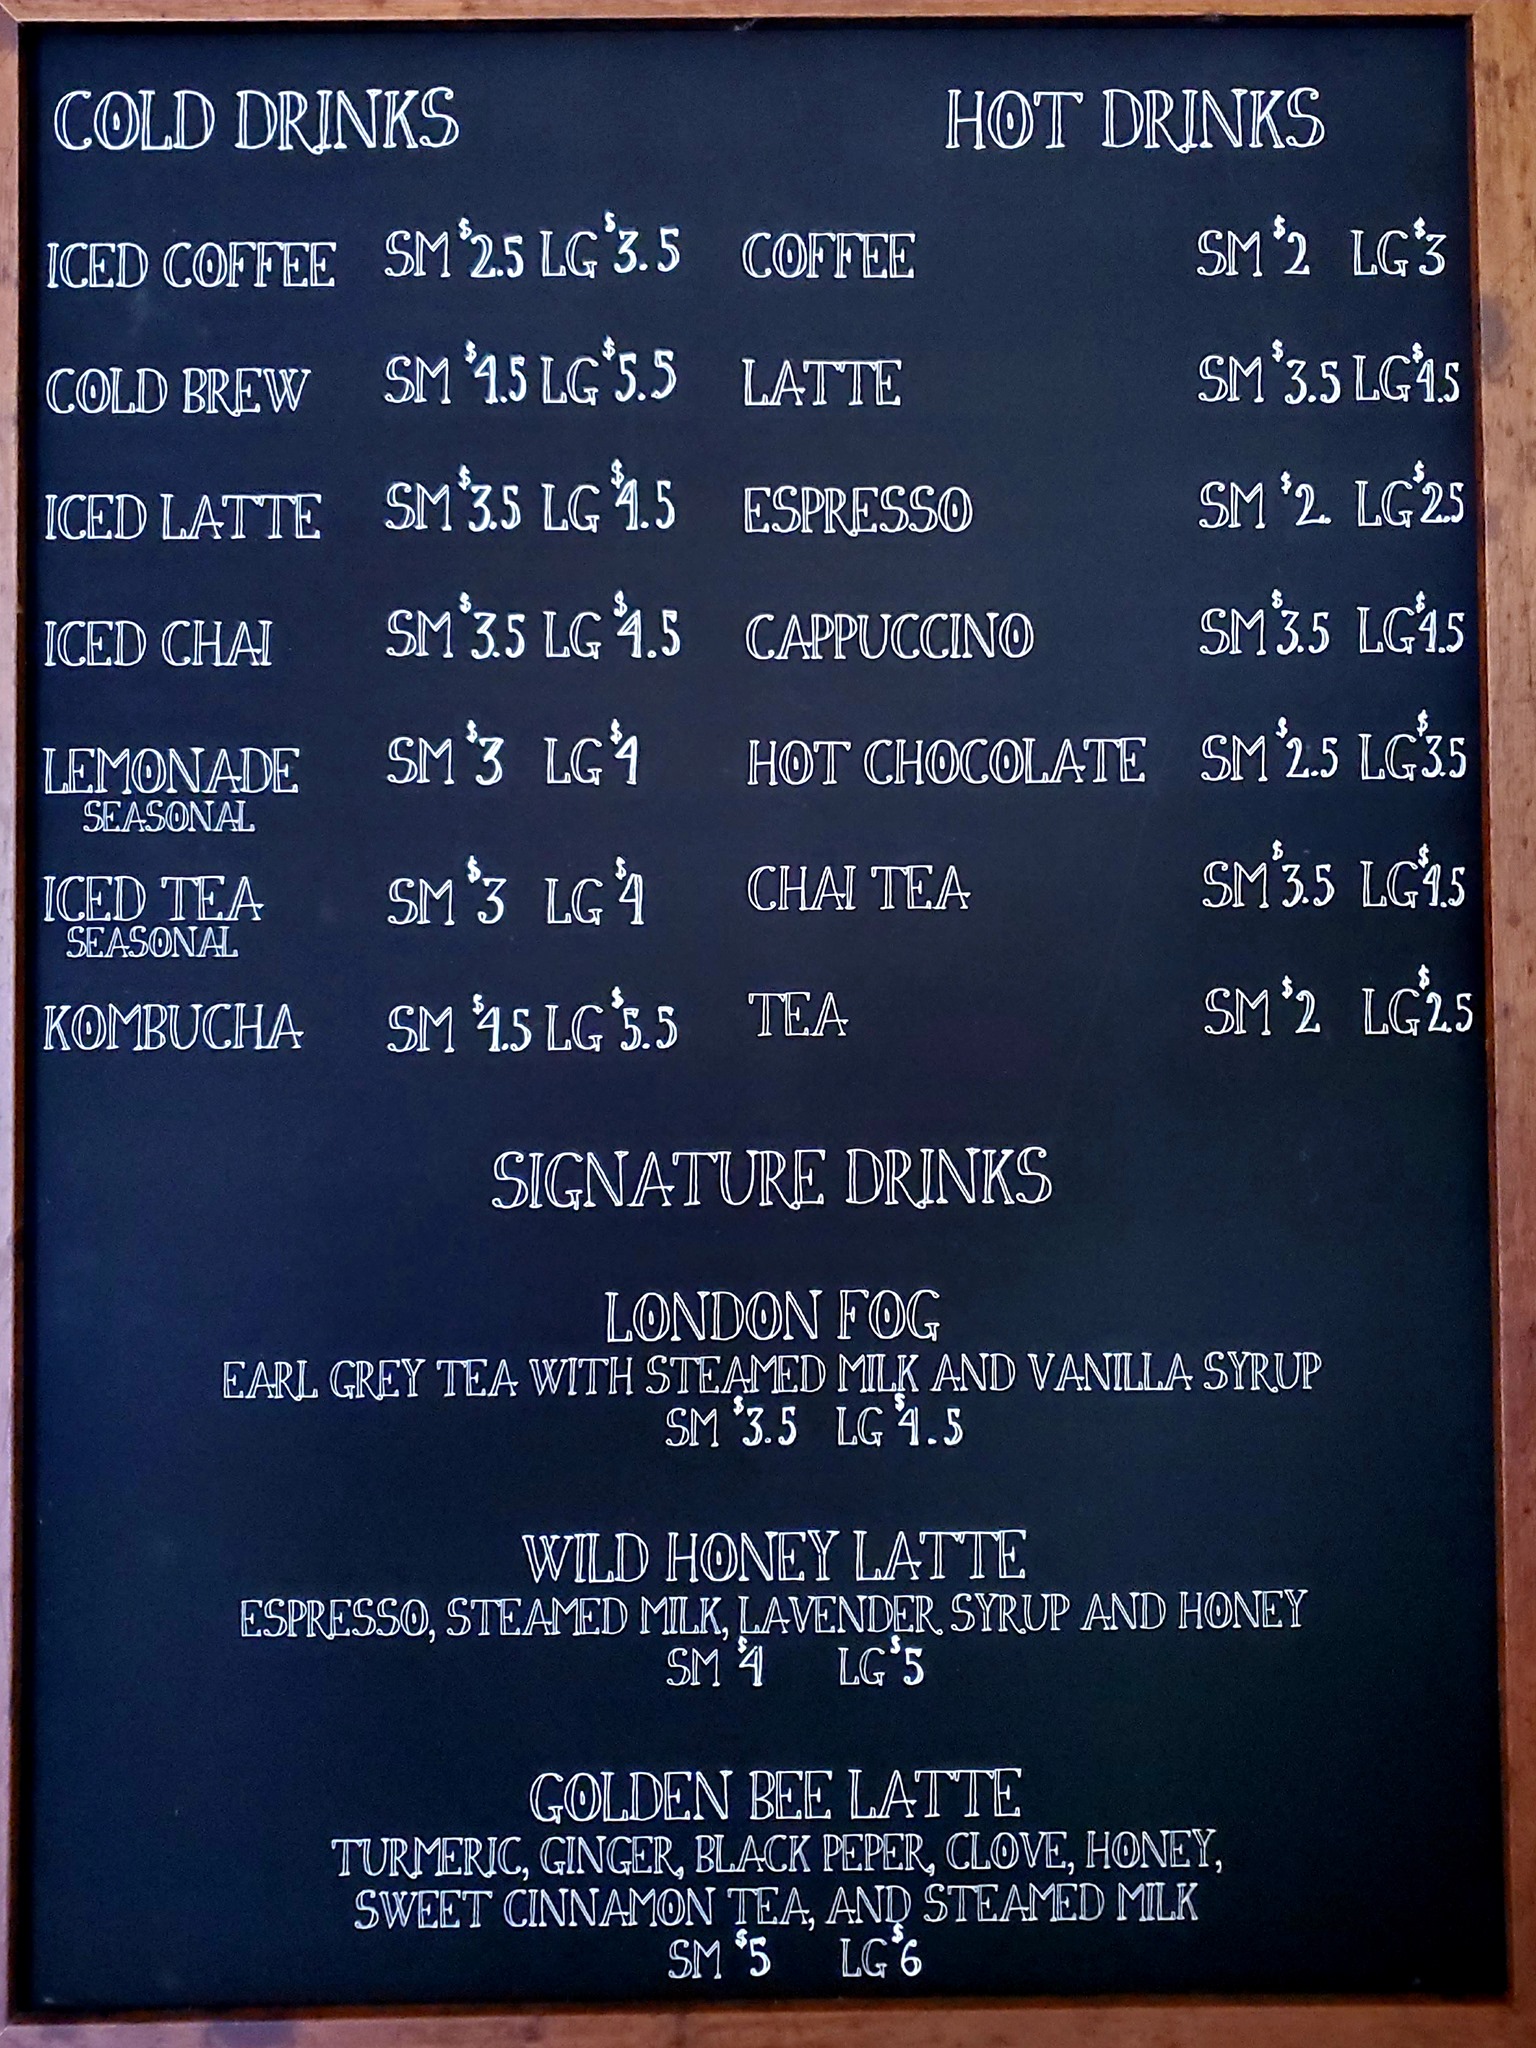 COLD DRINKS
ICED COFFEE SM $2.5 LG $3.5
COLD BREW SM $4.5 LG $5.5
ICED LATTE SM $3.5 LG $4.5
ICED CHAI SM $3.5 LG $4.5
LEMONADE SM $3 LG $4
SEASONAL
ICED TEA SM $3 LG $4
SEASONAL
KOMBUCHA SM $4.5 LG $5.5
HOT DRINKS
COFFEE SM $2 LG $3
LATTE SM $3.5 LG $4.5
ESPRESSO SM $2. LG $2.5
CAPPUCCINO SM $3.5 LG $4.5
HOT CHOCOLATE SM $2.5 LG $3.5
CHAI TEA SM $3.5 LG $4.5
TEA SM $2 LG $2.5
SIGNATURE DRINKS
LONDON FOG
EARL GREY TEA WITH STEAMED MILK AND VANILLA SYRUP
SM $3.5 LG $4.5
WILD HONEY LATTE
ESPRESSO, STEAMED MILK, LAVENDER SYRUP AND HONEY
SM $4 LG $5
GOLDEN BEE LATTE
TURMERIC, GINGER, BLACK PEPER, CLOVE, HONEY,
SWEET CINNAMON TEA, AND STEAMED MILK
SM $5 LG $6